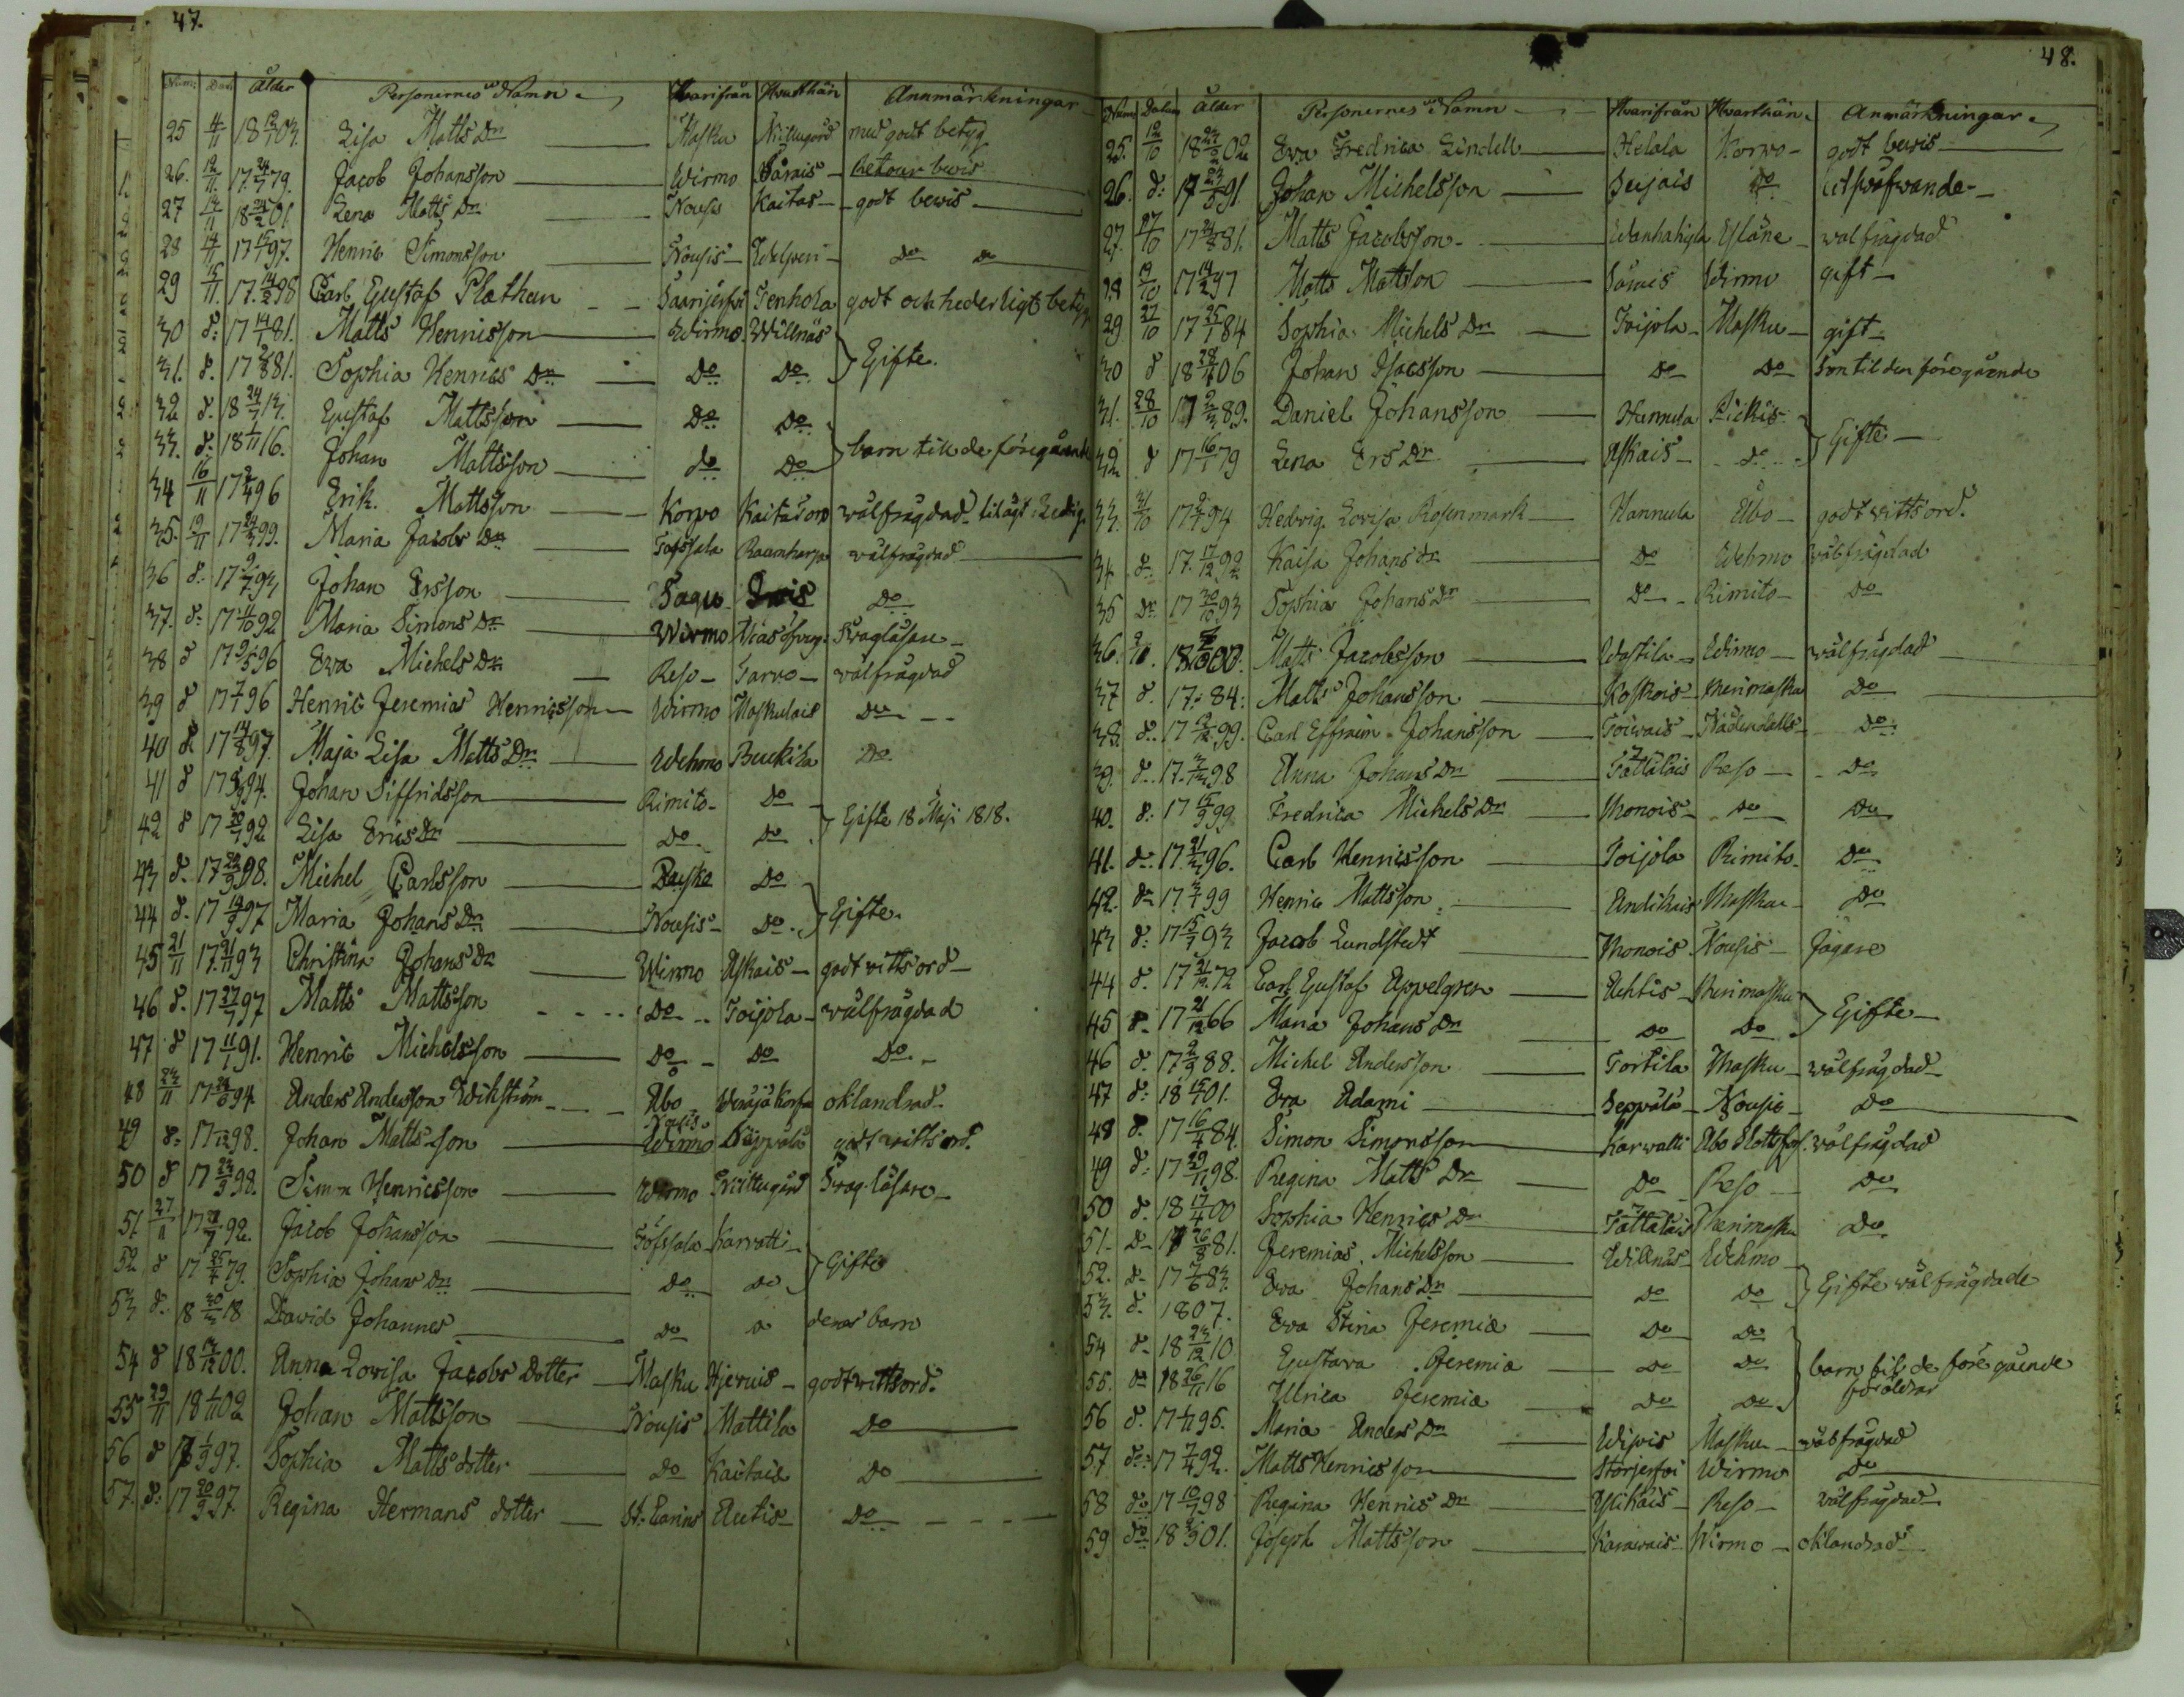 47.
Num: Dat: Ålder Personernes Namn Hvarifrån Hvarthän Anmärkningar
25 4/11 18 12/7 03. Lisa Matts Dr Masku med godt betyg
26. 12/11. 17. 24/7 79. Jacob Johansson Wirmo Särais
27 14/11 18 21/2 01. Lena Matts Dr Nousis Kaitas godt bewis
28 14/11 17 15/7 97. Henric Simonsson Nousis Do Do
29 15/11. 17. 14/2 98 Carl Gustaf Plathan Saarijerfvi Tenhola godt och hederligt betyg
30 d: 17 14/1 81. Matts Henricsson Wirmo Willnäs
31. d. 17 2/8 81. Sophia Henrics Dr Do Do Gifte.
32 d. 18 24/7 13. Gustaf Mattsson Do Do
33. d: 18 1/11 16. Johan Mattsson do Do barn till de föregående
34 16/11 17 2/4 96 Erik Mattsson Korpo wälfrägdad
35. 19/11 17 24/3 99. Maria Jacobs Dr Tofssala wälfrägdad
36 d: 17 9/7 93 Johan Ersson Sagu Do
37. d: 17 11/10 92 Maria Simons Dr Wirmo
38 d 17 9/5 96 Eva Michels Dr Reso Tarvo wälfrägdad
39 d 17 7/7 96 Henric Jeremias Henricsson Wirmo Maskulais Do
40 d 17 14/8 97. Maja Lisa Matts Dr Wehmo Do
41 d 17 5/3 94. Johan Siffridsson Rimito Do
42 d 17 20/1 92 Lisa Erics Dr Do Do Gifte 18 Maji 1818.
43 d. 17 29/9 98. Michel Carlsson Do
44 d. 17 19/9 97 Maria Johans Dr Nousis Do. Gifte.
45 21/11 17 21/11 93 Christina Johans Dr Wirmo Askais godt vittsord
46 d. 17 27/7 97 Matts Mattsson Do Toijola wälfrägdad
47 d 17 11/1 91. Henric Michelsson Do Do Do
48 23/11 17 24/8 94 Anders Andersson Wikström Åbo oklandrad
49 d: 17 98. Johan Mattsson Wirmo Säppälä godt wittsord.
50 d 17 23/3 98. Simon Henricsson Wirmo
51 27/11 17 92. Jacob Johansson Töfssala Karvatti
52 d 17 25/4 79. Sophia Johans Dr Do Do Gifte
53 d. 18 30/3 18 David Johannes Do deras barn
54 d 18 13/12 00. Anna Lovisa Jacobs Dotter Masku Hjervis godt wittsord.
55 29/11 18 1/11 02 Johan Mattsson Nousis Mattila Do
56 d 17 1/9 97. Sophia Matts dotter do Kaitais Do
57. d: 17 20/9 97. Regina Hermans dotter St. Carins Autis Do
48.
Num Datum Ålder Personernes Namn Hvarifrån Hvarthän Anmärkningar
25. 12/10 18 02 Eva Fredrica Lindell Helala Korpo godt bewis
26. d: 17 23/3 91. Johan Michelsson Seijais do
27. 17/10 17 24/8 81. Matts Jacobsson Yläne wälfrägdad
28 19/10 17 14/2 97 Matts Mattsson Särais Wirmo gift
29 27/10 17 25/1 84 Sophia Michels Dr Toijola Masku gift
30 d 18 28/4 06 Johan Isacsson Do Do Son til den föregående
31. 28/10 17 2/3 89. Daniel Johansson Hannula Pickis
32 d 17 16/1 79 Lena Ers Dr Askais do Gifte
33. 31/10 17 2/7 94 Hedvig Lovisa Rosenmark Hannula Åbo godt wittsord.
34. d: 17. 17/12 92 Kaisa Johans dr Do Wehmo wälfrägdad
35 Do 17 30/10 93 Sophia Johans Dr Do Rimito Do
36. Matts Jacobsson Wastila Wirmo wälfrägdad
37 d. 17. 84: Matts Johansson Koskois Merimasku Do
38. d. 17 99. Carl Effraim Johansson Toiwais Nådendals Do
39. d. 17. 98 Anna Johans Dr Tattalais Reso Do
40. d. 17 15/9 99 Fredrica Michels Dr Monois Do Do
41. do 17 21/3 96. Carl Henricsson Toijola Rimito Do
42. do 17. 99 Henric Mattsson Andikais Masku Do
43 d: 17 15/7 93 Jacob Lundstedt Monois Nousis Jägare
44 d. 17 21/12 72 Carl Gustaf Appelgren Ahtis Merimasku
45 d. 17 21/12 66 Maria Johans Dr Do Do Gifte
46 d. 17 2/9 88. Michel Andersson Tortila Masku wälfrägdad
47 d: 18 15/7 01. Eva Adami Seppälä Nousis Do
48 d. 17 16/4 84. Simon Simonsson Karwatti wälfrägdad
49 d: 17 29/11 98. Regina Matts Dr Do Reso Do
50 d. 18 17/4 00 Sophia Henrics Dr Tattalais Merimasku Do
51. D 17 26/8 81. Jeremias Michelsson Willnäs Wehmo
52. d 17 7/6 83. Eva Johans Dr Do Do Gifte wälfrägdade
53. d. 1807. Eva Stina Jeremiæ Do Do
54 d. 18 23/12 10 Gustava Jeremiæ Do Do
55. do 18 26/11 16 Ulrica Jeremiæ Do Do barn til de föregående föräldrar
56 d. 17 95. Maria Anders Dr Masku wälfrägdad
57. d: 17 7/4 92. Matts Henricsson Wirmo Do
58 do 17 10/7 98 Regina Henrics Dr Ylikäis Reso wälfrägdad
59 do 18 01. Joseph Mattsson Karawais Wirmo oklandrad